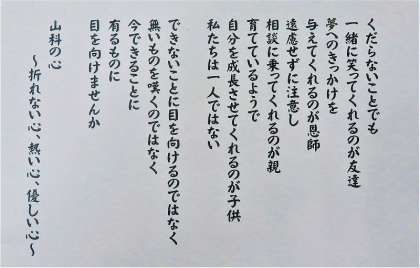 くだらないことでも
一緒に笑ってくれるのが友達
夢へのきっかけを
与えてくれるのが恩師
遠慮せずに注意し
相談に乗ってくれるのが親
育てているようで
自分を成長させてくれるのが子供
私たちは一人ではない
できないことに目を向けるのではなく
無いものを嘆くのではなく
今できることに
有るものに
目を向けませんか
山科の心
～折れない心、熱い心、優しい心～